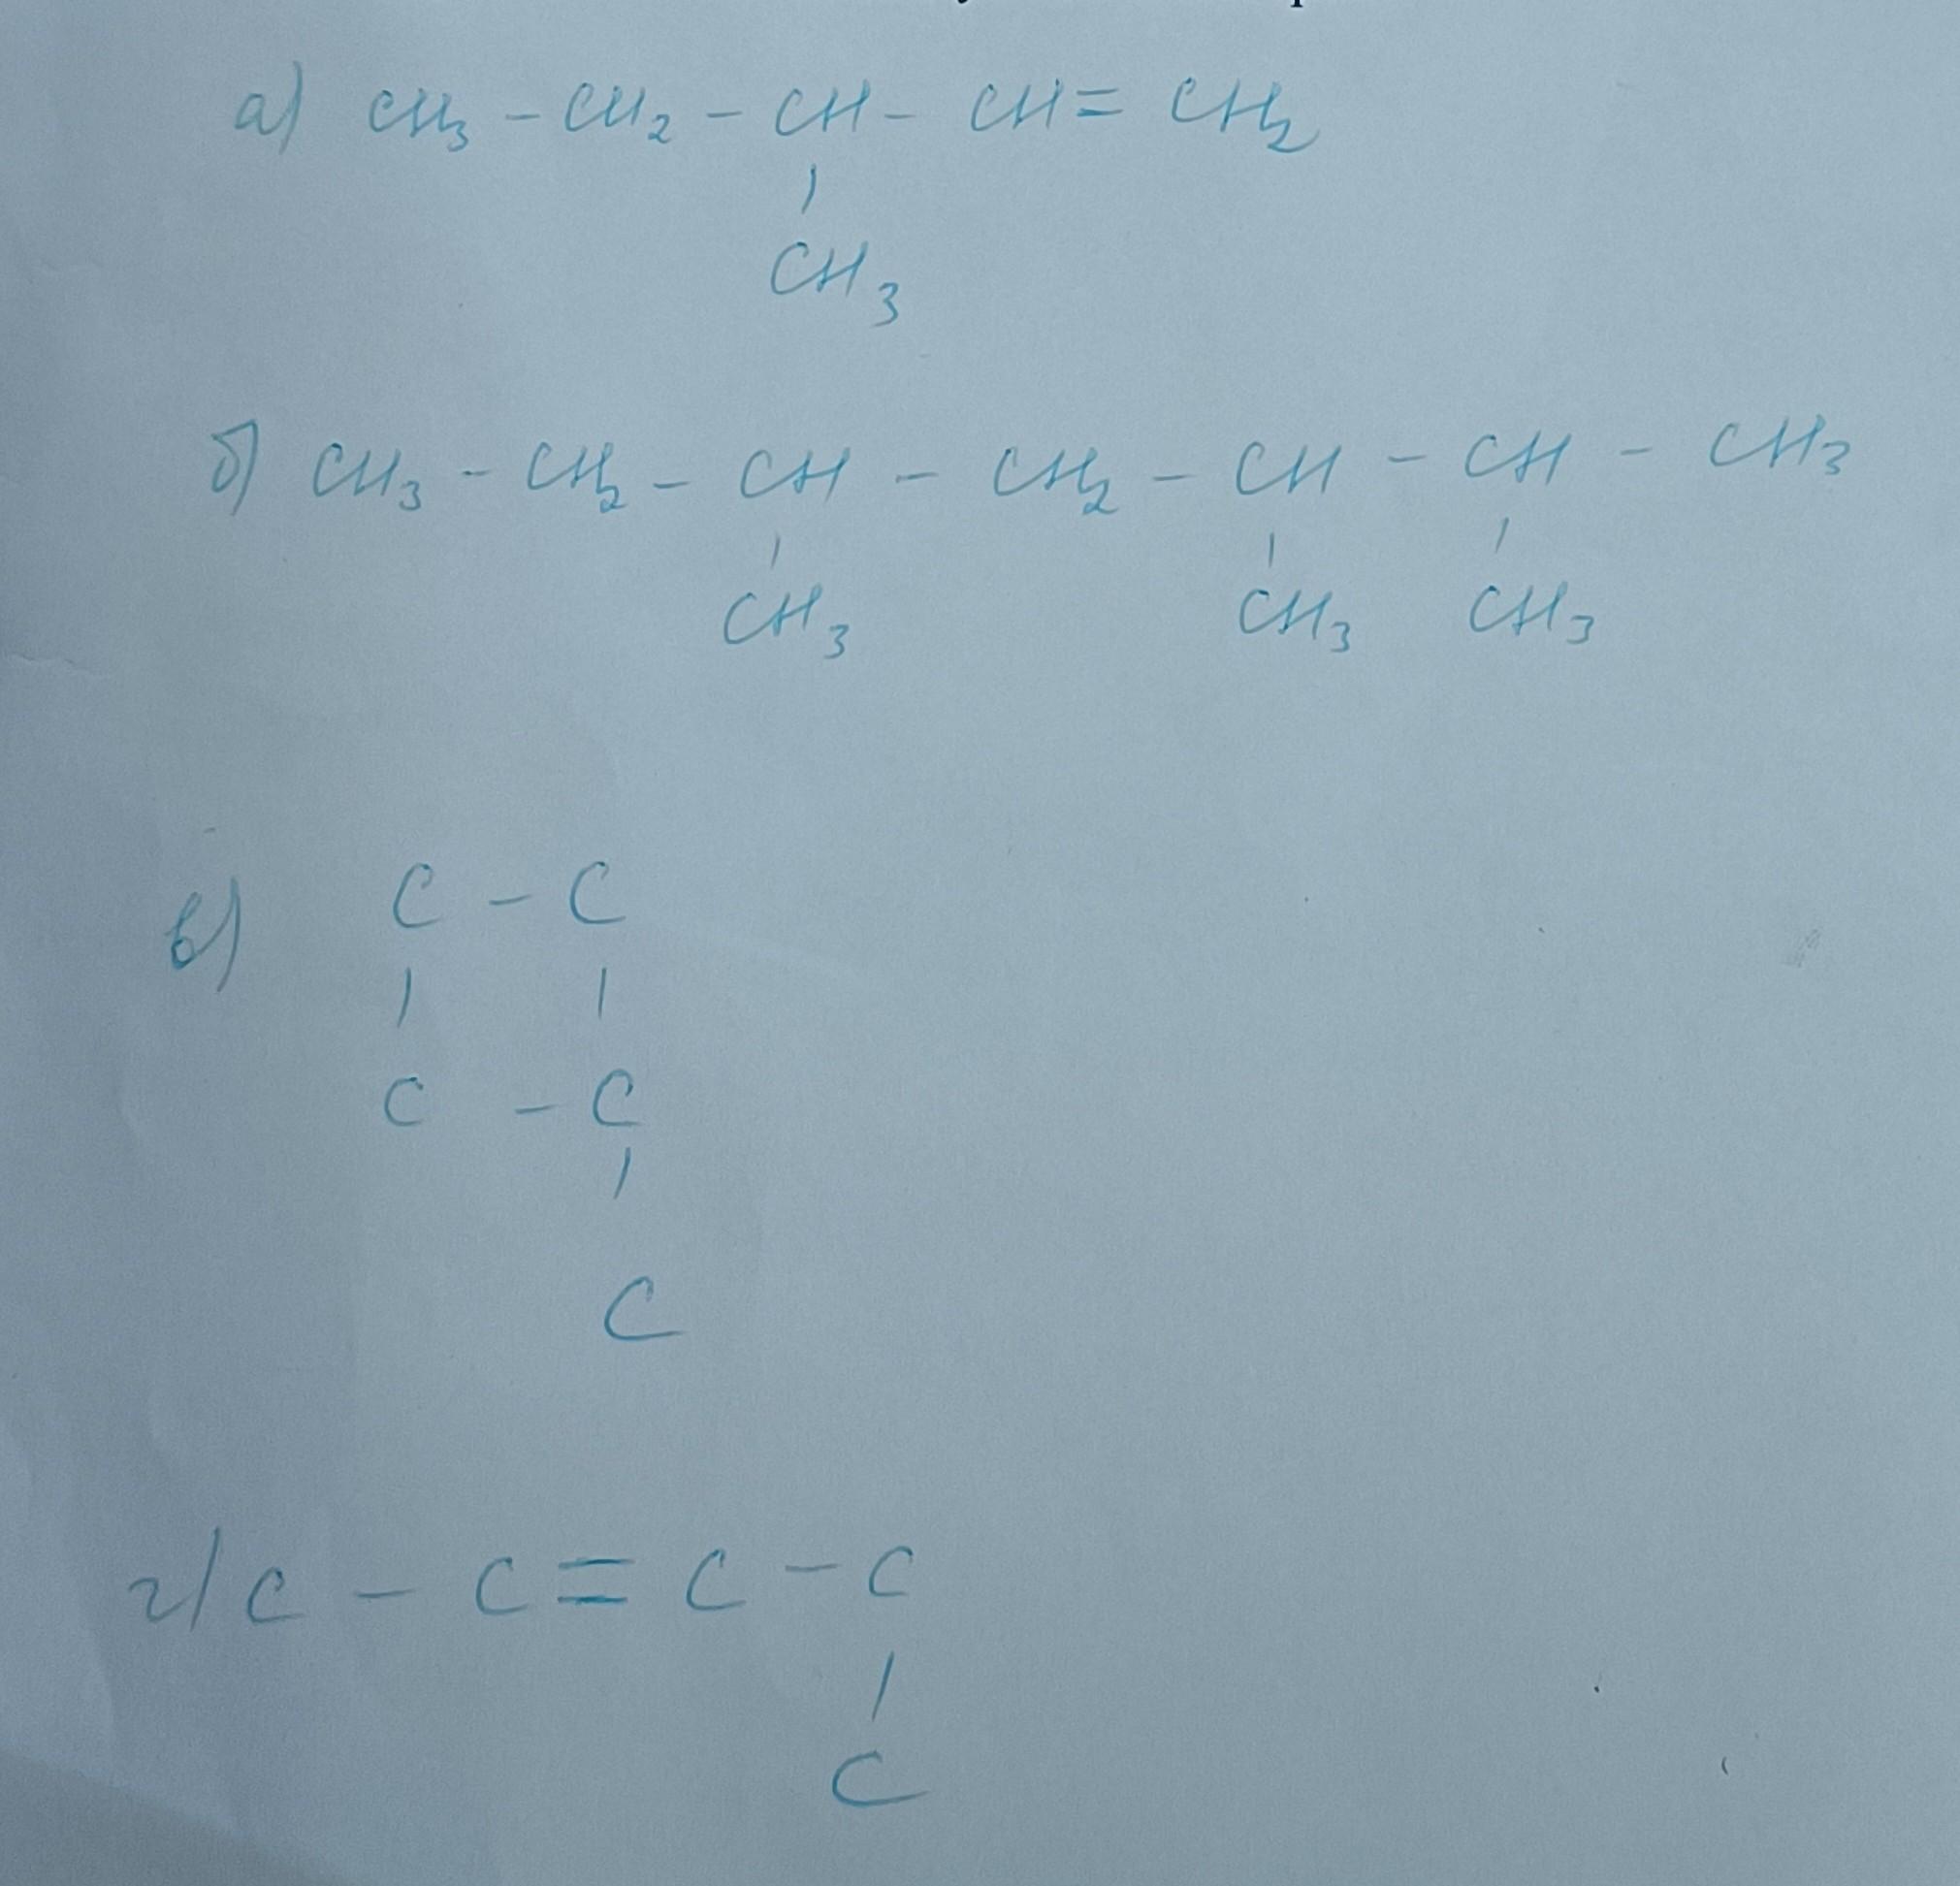 а) CH3 - CH2 - CH - CH = CH2
|
CH3
б) CH3 - CH2 - CH - CH2 - CH - CH - CH3
| | |
CH3 CH3 CH3
в) C - C
| |
C - C
|
C
г) C - C = C - C
|
C